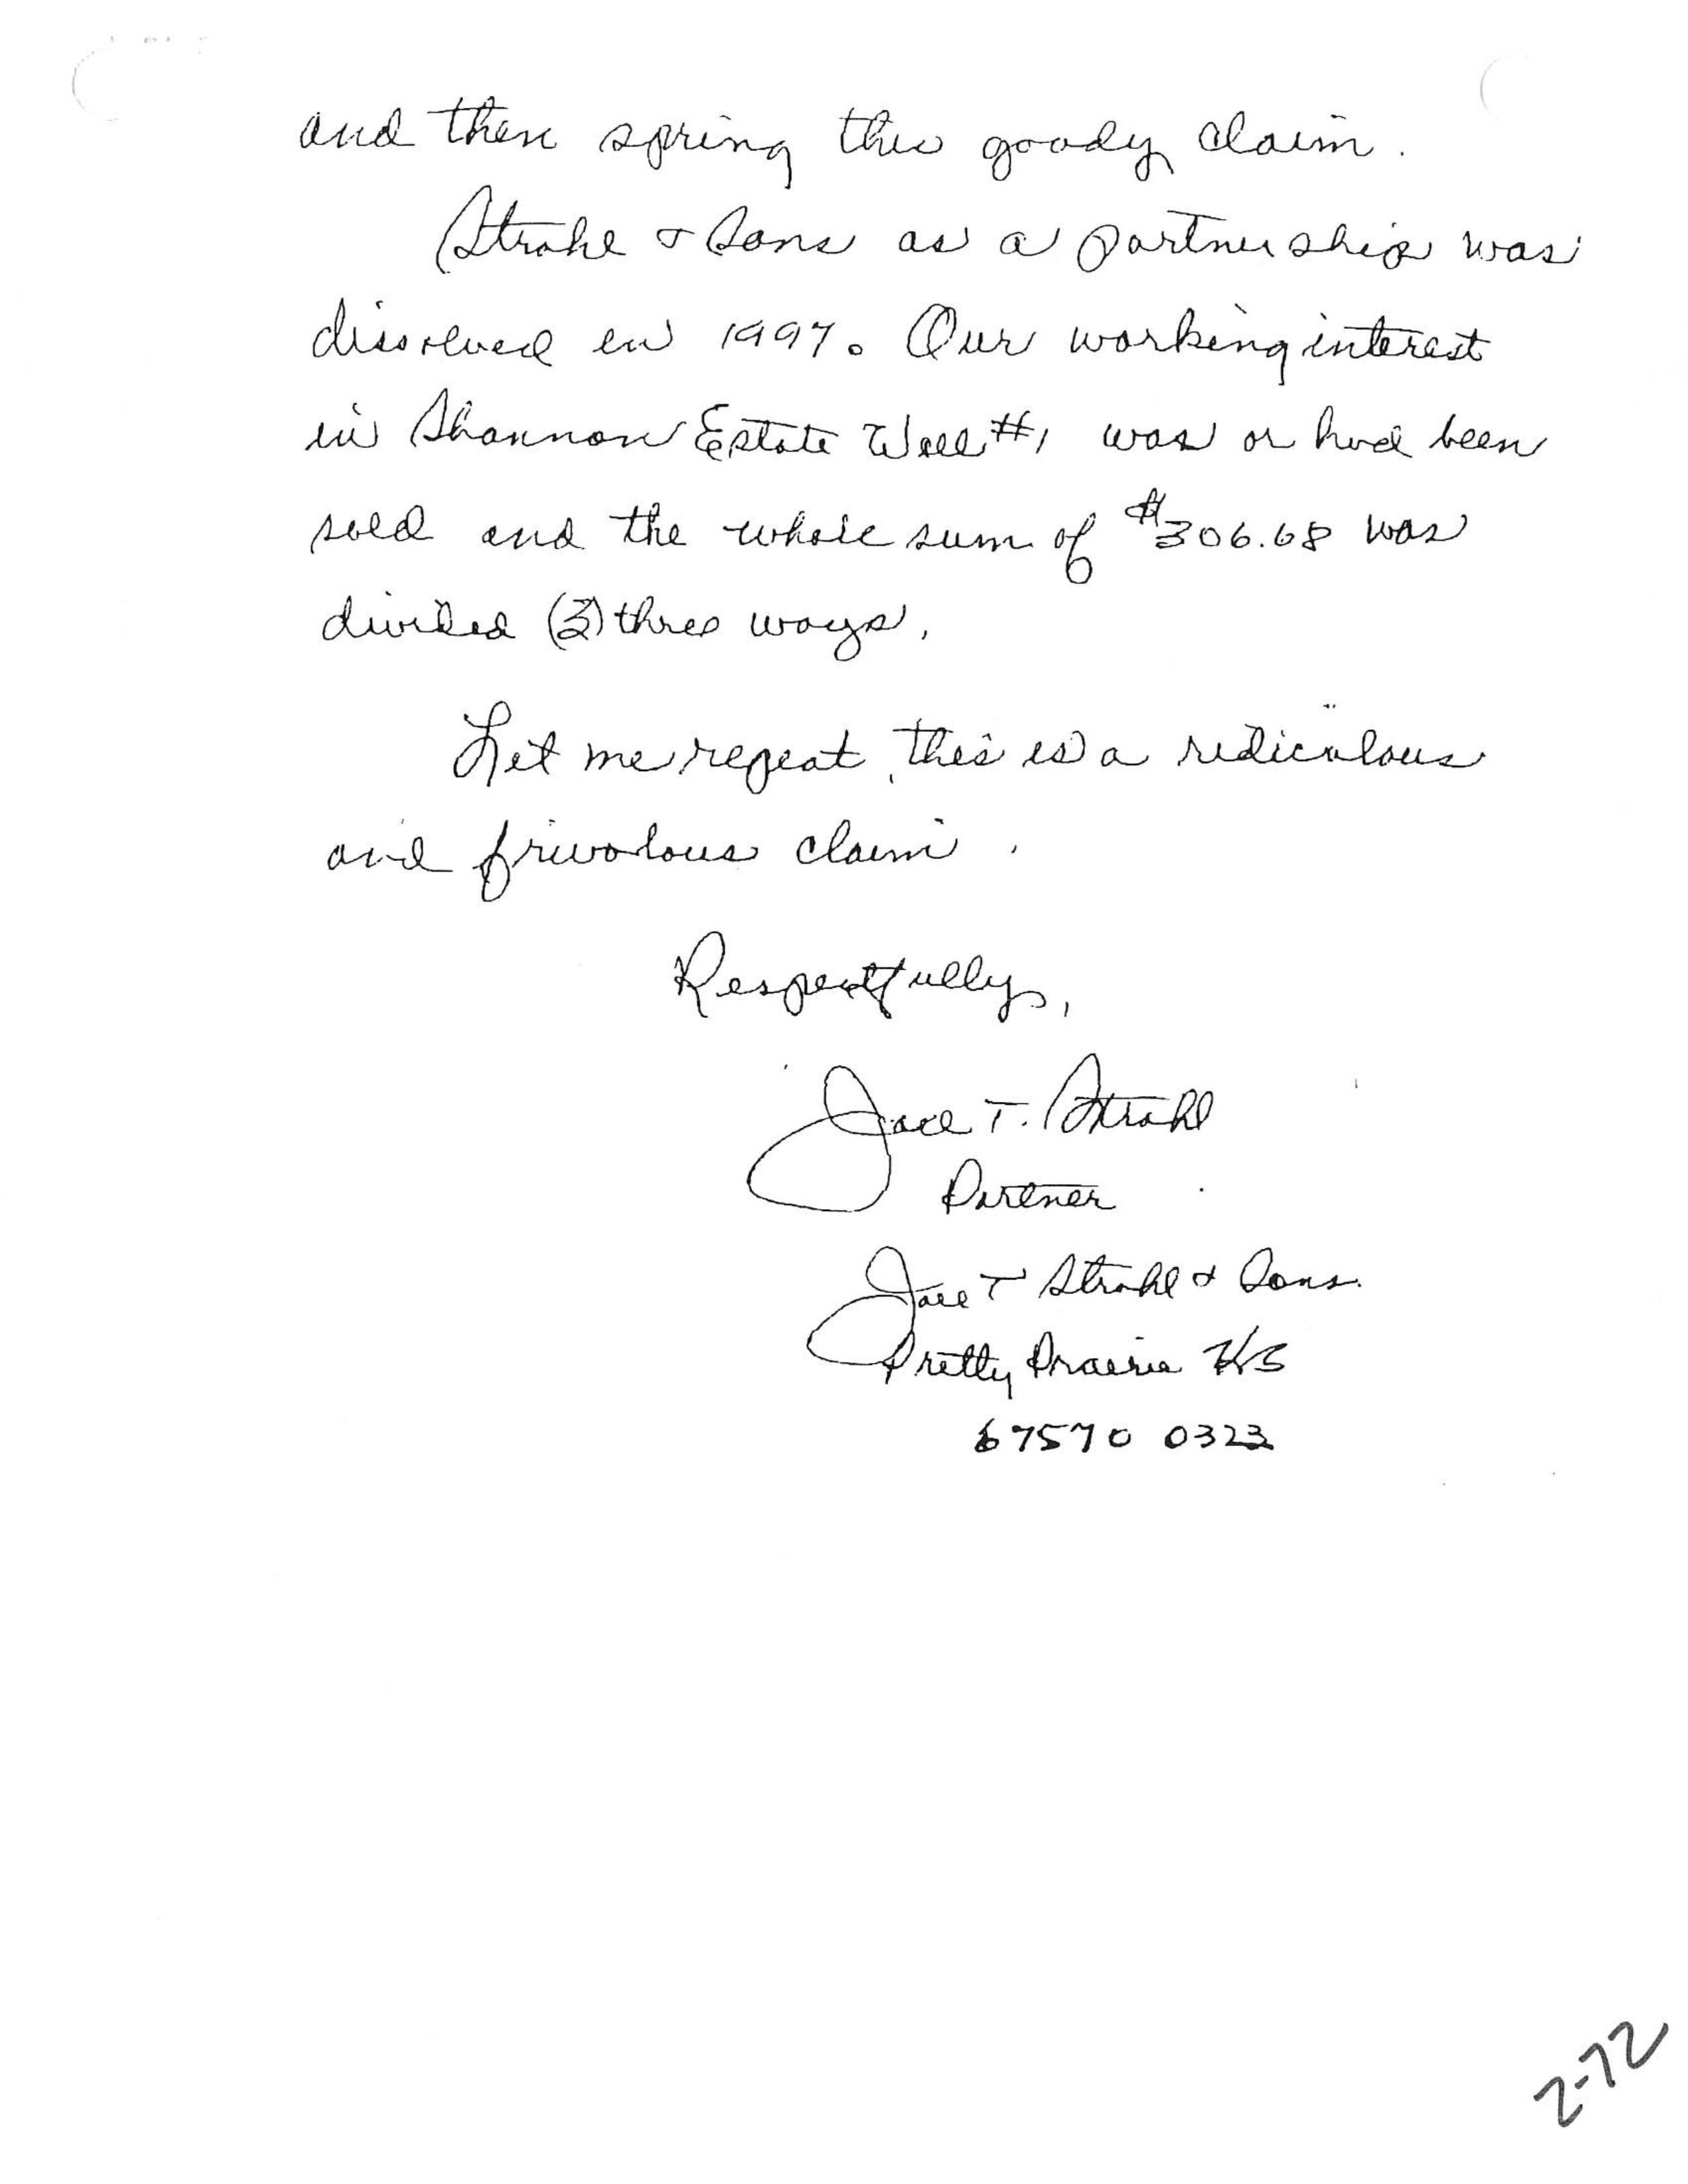 and then spring this goody claim.
Strohl & Sons as a partnership was
dissolved in 1997. Our working interest
in Shannon Estate Well #1 was or had been
sold and the whole sum of $306.68 was
divided (3) three ways.
Let me repeat, this is a ridiculous
and frivolous claim.
Respectfully,
T. Strohl
Partner
T Strohl & Sons
Pretty Prairie KS
67570 0323
2-72